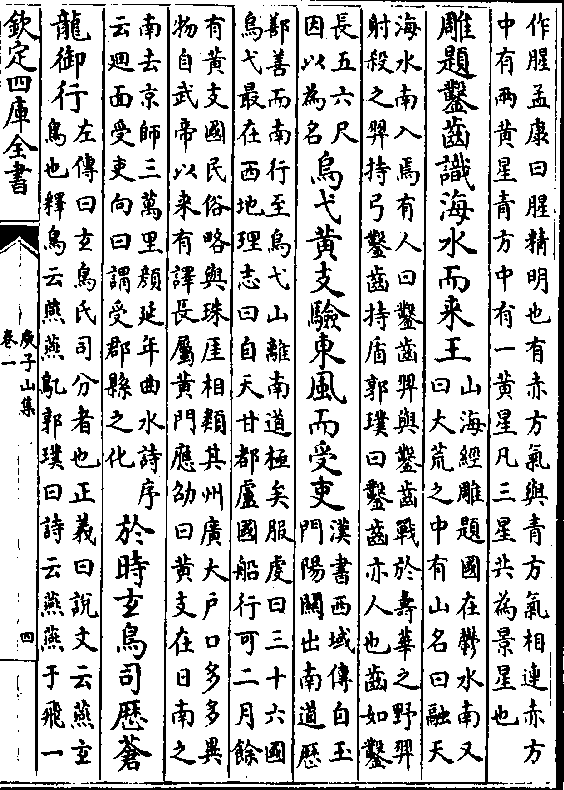 作腥孟康曰腥精明也有赤方氣與青方氣相連赤方
中有兩黃星青方中有一黃星凡三星共為景星也
雕題鑿齒識海水而來王
山海經雕題國在鬱水南又
曰大荒之中有山名曰融天
海水南入焉有人曰鑿齒羿與鑿齒戰於壽華之野羿
射殺之羿持弓鑿齒持盾郭璞曰鑿齒亦人也齒如鑿
長五六尺
因以為名
烏弋黃支驗東風而受吏
漢書西域傳自玉
門陽關出南道歷
鄯善而南行至烏弋山離南道極矣服虔曰三十六國
烏弋最在西地理志曰自天甘都盧國船行可二月餘
有黃支國民俗略與珠厓相類其州廣大戶口多多異
物自武帝以来有譯長屬黃門應劭曰黃支在日南之
南去京師三萬里顔延年曲水詩序
云廻面受吏向曰謂受郡縣之化
於時玄鳥司歷蒼
龍御行
左傳曰玄鳥氏司分者也正義曰說文云燕玄
鳥也釋鳥云燕燕鳦郭璞曰詩云燕燕于飛一
欽定四庫全書
庾子山集
卷一
四